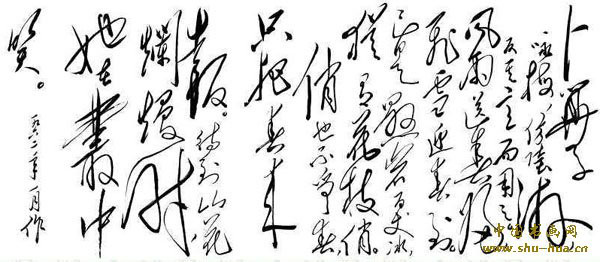 卜算子
咏梅
反其意而用之
风雨送春归
飞雪迎春到。
已是悬崖百丈冰,
犹有花枝俏。
俏也不争春
只把春来
报。待到山花
爛熳时
她在叢中
笑。
一九六二年一月作
中国书画网
www.shu-hua.cn